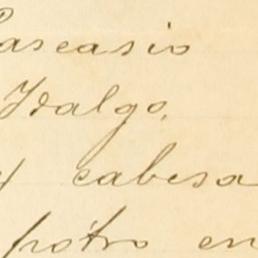 Pascasio
Hidalgo,
y cabesa
potro en